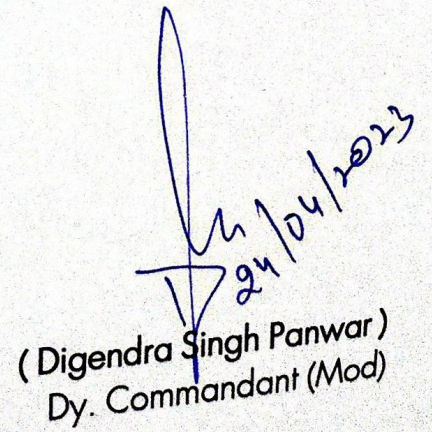 24/04/2023
( Digendra Singh Panwar )
Dy. Commandant (Mod)